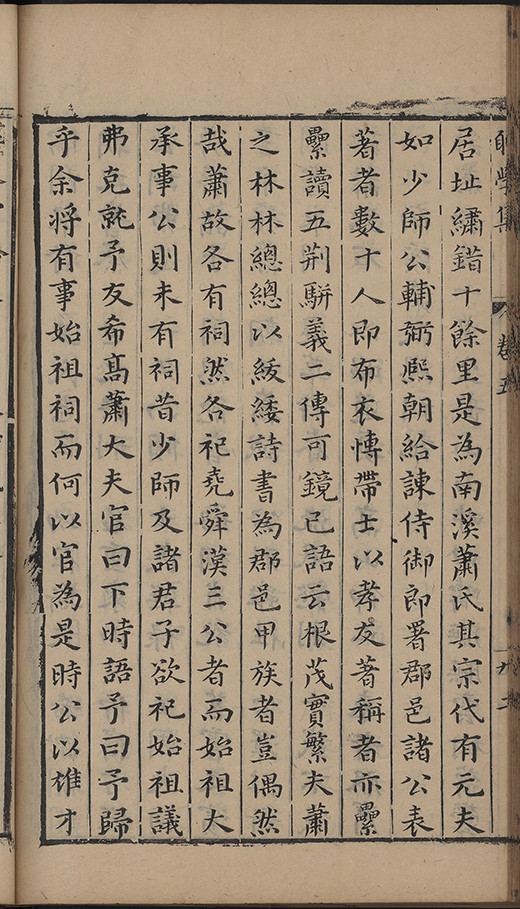 學集
卷五
居址繡錯十餘里是為南溪蕭氏其宗代有元夫
如少師公輔弼熙朝給諫侍御郎署郡邑諸公表
著者數十人即布衣慱帶士以孝友著稱者亦纍
纍讀五荆駢義二傳可鏡已語云根茂實繁夫蕭
之林林總總以紱緌詩書為郡邑甲族者豈偶然
哉蕭故各有祠然各祀堯舜漢三公者而始祖大
承事公則未有祠昔少師及諸君子欲祀始祖議
弗克就予友希髙蕭大夫官曰下時語予曰予歸
乎余將有事始祖祠而何以官為是時公以雄才